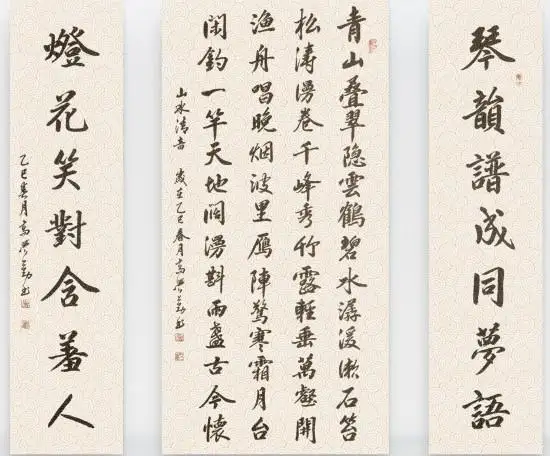 琴韻譜成同夢語
青山叠翠隐雲鶴碧水潺湲漱石苔
松涛漫卷千峰秀竹露輕垂萬壑開
渔舟唱晚烟波里雁陣驚寒霜月台
閑釣一竿天地闊漫斟兩盞古今懷
山水清音 歲在乙巳春月高兴勤书
燈花笑對含羞人
乙巳春月高兴勤书